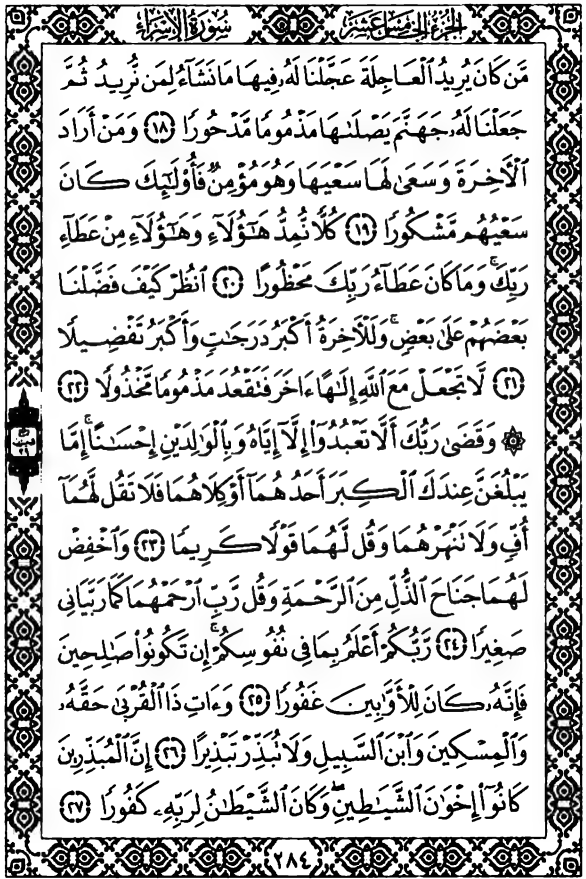 الجُزْءُ الخَامِسَ عَشَرَ
سُورَةُ الإِسْرَاءِ
مَّن كَانَ يُرِيدُ ٱلْعَاجِلَةَ عَجَّلْنَا لَهُۥ فِيهَا مَا نَشَآءُ لِمَن نُّرِيدُ ثُمَّ
جَعَلْنَا لَهُۥ جَهَنَّمَ يَصْلَىٰهَا مَذْمُومًا مَّدْحُورًا ١٨ وَمَنْ أَرَادَ
ٱلْأَخِرَةَ وَسَعَىٰ لَهَا سَعْيَهَا وَهُوَ مُؤْمِنٌ فَأُو۟لَٰٓئِكَ كَانَ
سَعْيُهُم مَّشْكُورًا ١٩ كُلًّا نُّمِدُّ هَٰٓؤُلَآءِ وَهَٰٓؤُلَآءِ مِنْ عَطَآءِ
رَبِّكَ ۚ وَمَا كَانَ عَطَآءُ رَبِّكَ مَحْظُورًا ٢٠ ٱنظُرْ كَيْفَ فَضَّلْنَا
بَعْضَهُمْ عَلَىٰ بَعْضٍ ۚ وَلَلْأَخِرَةُ أَكْبَرُ دَرَجَٰتٍ وَأَكْبَرُ تَفْضِيلًا
٢١ لَّا تَجْعَلْ مَعَ ٱللَّهِ إِلَٰهًا ءَاخَرَ فَتَقْعُدَ مَذْمُومًا مَّخْذُولًا ٢٢
۞ وَقَضَىٰ رَبُّكَ أَلَّا تَعْبُدُوٓا۟ إِلَّآ إِيَّاهُ وَبِٱلْوَٰلِدَيْنِ إِحْسَٰنًا ۚ إِمَّا
يَبْلُغَنَّ عِندَكَ ٱلْكِبَرَ أَحَدُهُمَآ أَوْ كِلَاهُمَا فَلَا تَقُل لَّهُمَآ
أُفٍّ وَلَا تَنْهَرْهُمَا وَقُل لَّهُمَا قَوْلًا كَرِيمًا ٢٣ وَٱخْفِضْ
لَهُمَا جَنَاحَ ٱلذُّلِّ مِنَ ٱلرَّحْمَةِ وَقُل رَّبِّ ٱرْحَمْهُمَا كَمَا رَبَّيَانِى
صَغِيرًا ٢٤ رَّبُّكُمْ أَعْلَمُ بِمَا فِى نُفُوسِكُمْ ۚ إِن تَكُونُوا۟ صَٰلِحِينَ
فَإِنَّهُۥ كَانَ لِلْأَوَّٰبِينَ غَفُورًا ٢٥ وَءَاتِ ذَا ٱلْقُرْبَىٰ حَقَّهُۥ
وَٱلْمِسْكِينَ وَٱبْنَ ٱلسَّبِيلِ وَلَا تُبَذِّرْ تَبْذِيرًا ٢٦ إِنَّ ٱلْمُبَذِّرِينَ
كَانُوٓا۟ إِخْوَٰنَ ٱلشَّيَٰطِينِ ۖ وَكَانَ ٱلشَّيْطَٰنُ لِرَبِّهِۦ كَفُورًا ٢٧
٢٨٤